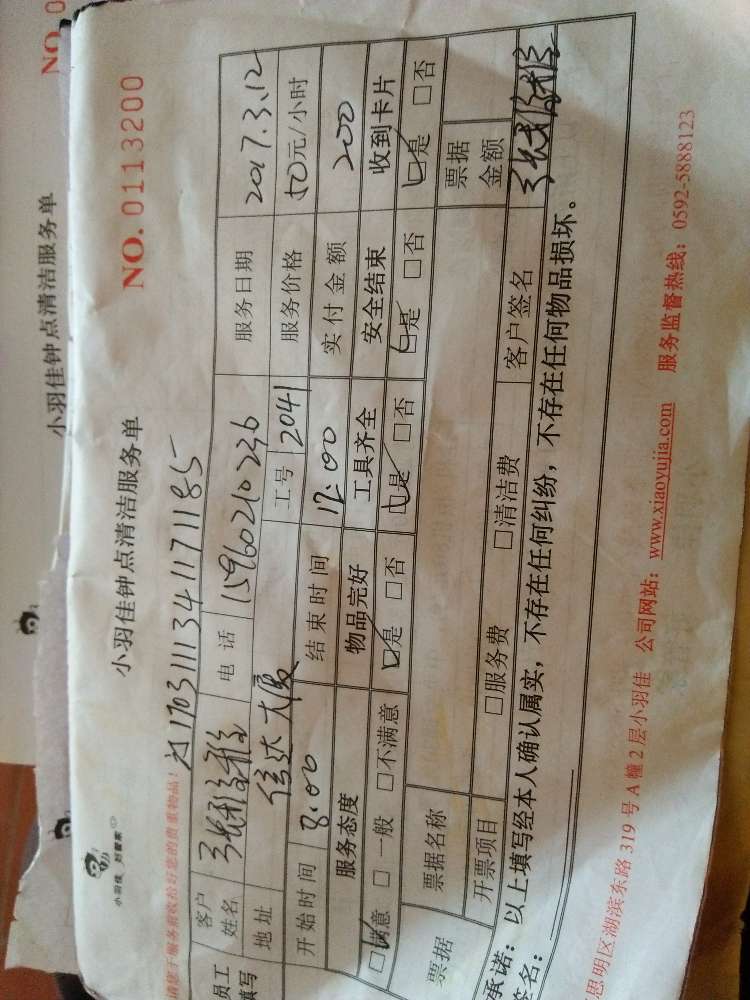 NO. 0
小羽佳钟点清洁服务单
小羽佳 好管家
小羽佳钟点清洁服务单
NO. 0113200
请您于服务前收拾好您的贵重物品!
1703111341171185
员工填写
客户姓名
电话 15960210236
服务日期 2017.3.12
地址 信达大厦
工号 2041
服务价格 50元/小时
开始时间 8:00
结束时间 12:00
实付金额 200
服务态度 物品完好 工具齐全 安全结束 收到卡片
□满意 □一般 □不满意 □是 □否 □是 □否 □是 □否 □是 □否
票据
票据名称
票据金额
开票项目 □服务费 □清洁费
客户签名
承诺:以上填写经本人确认属实,不存在任何纠纷,不存在任何物品损坏。
签名:
思明区湖滨东路 319 号 A 幢 2 层小羽佳 公司网站:www.xiaoyujia.com 服务监督热线:0592-5888123